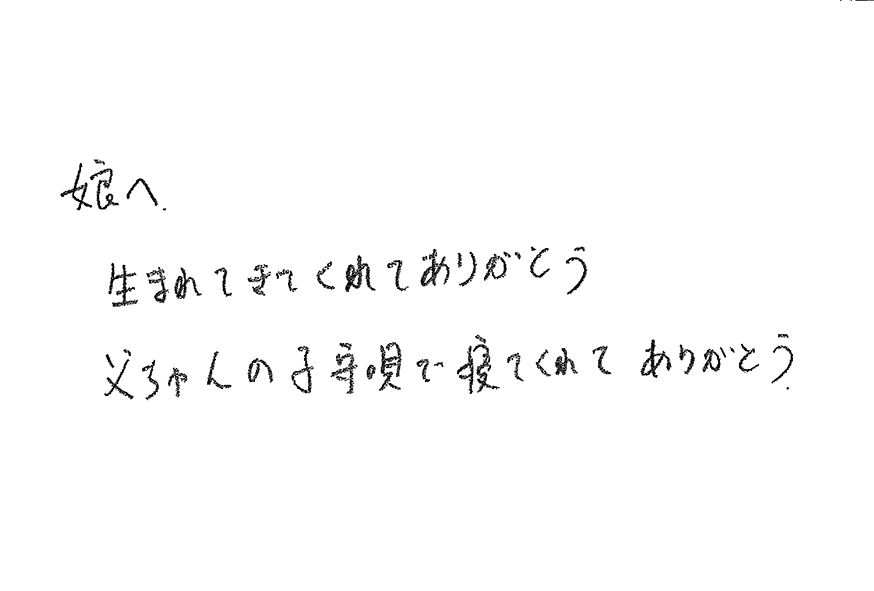 娘へ.
生まれてきてくれてありがとう
父ちゃんの子守唄で寝てくれてありがとう.